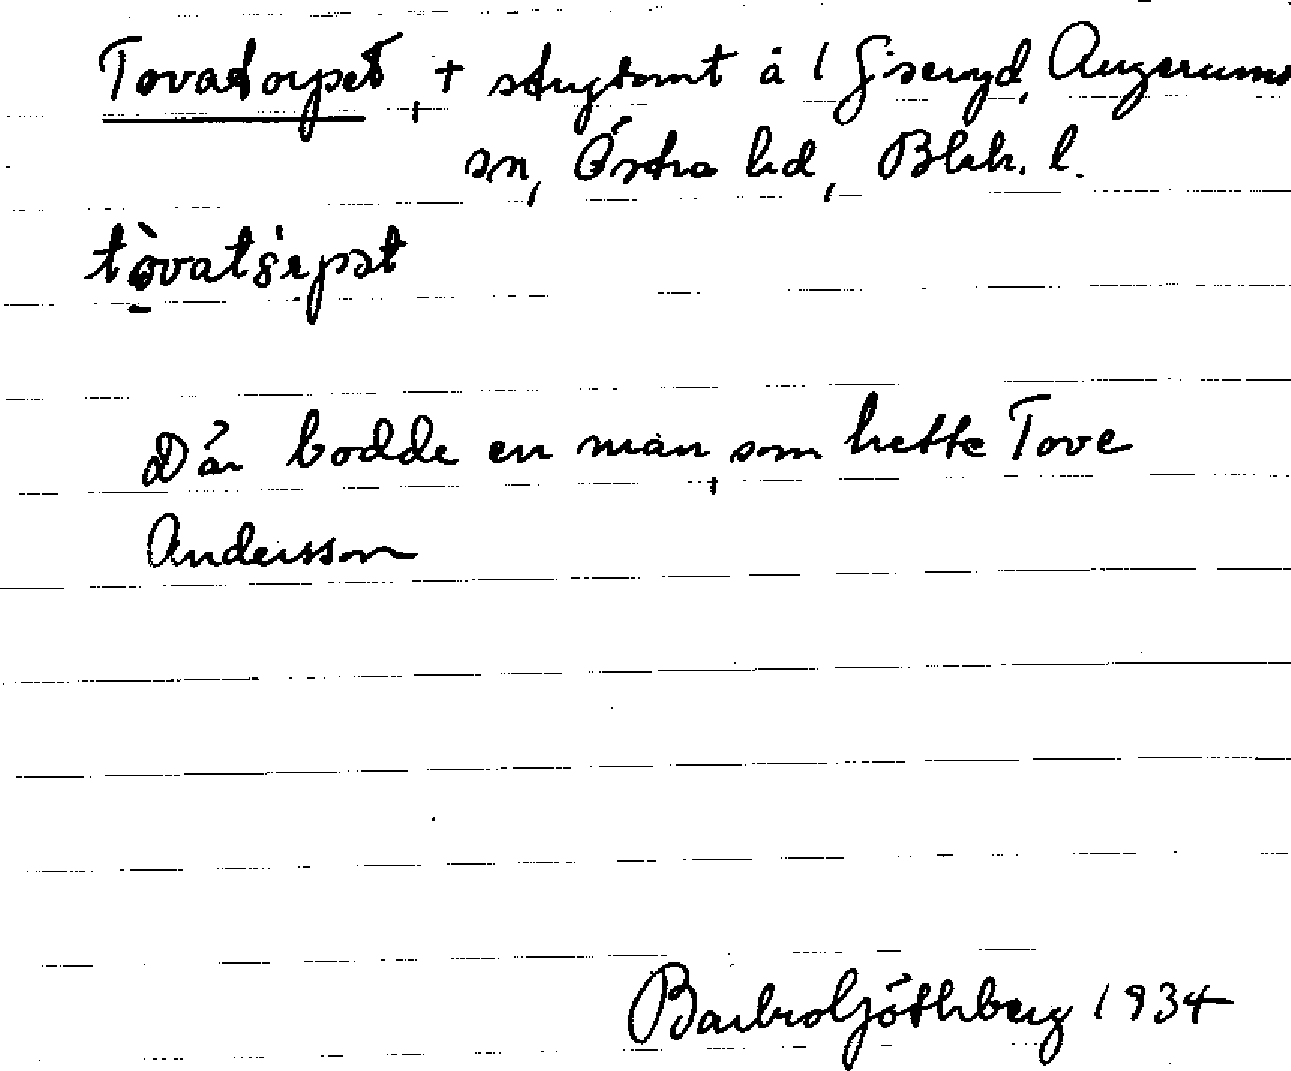 Tovatorpet, + stugtomt å 1 Giseryd, Augerums
sn, Östra hd, Blek. l.
Där bodde en man, som hette Tove
Andersson
Barbro Göthberg 1934